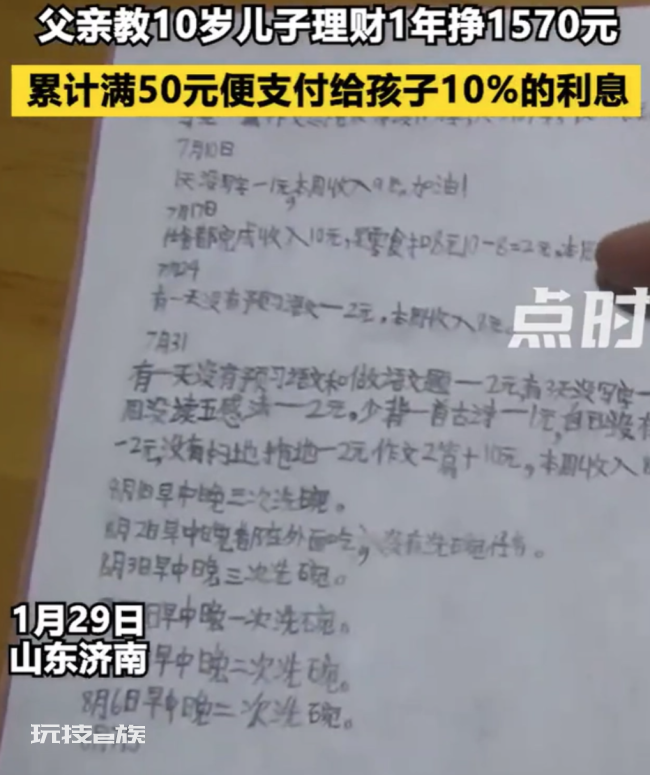 父亲教10岁儿子理财1年挣1570元
累计满50元便支付给孩子10%的利息
7月10日
1天没写字一1元,本周收入9元。加油!
7月17日
都完成收入10元,买零食扣8元10-8=2元。
7月24
有一天没有预习语文一2元。本周收入8元。
点时
7月31
有一天没有预习语文和做语文题一2元,有3天没写字一
周没读五感法一2元。少背一首古诗一1元,
-2元,没有扫地拖地一2元作文2篇+10元,本周收入
8月1日早中晚三次洗碗。
8月2日早中晚都在外面吃,没有洗碗任务。
8月3日早中晚三次洗碗。
日早中晚一次洗碗。
早中晚二次洗碗。
8月6日早中晚二次洗碗。
1月29日
山东济南
玩技e族